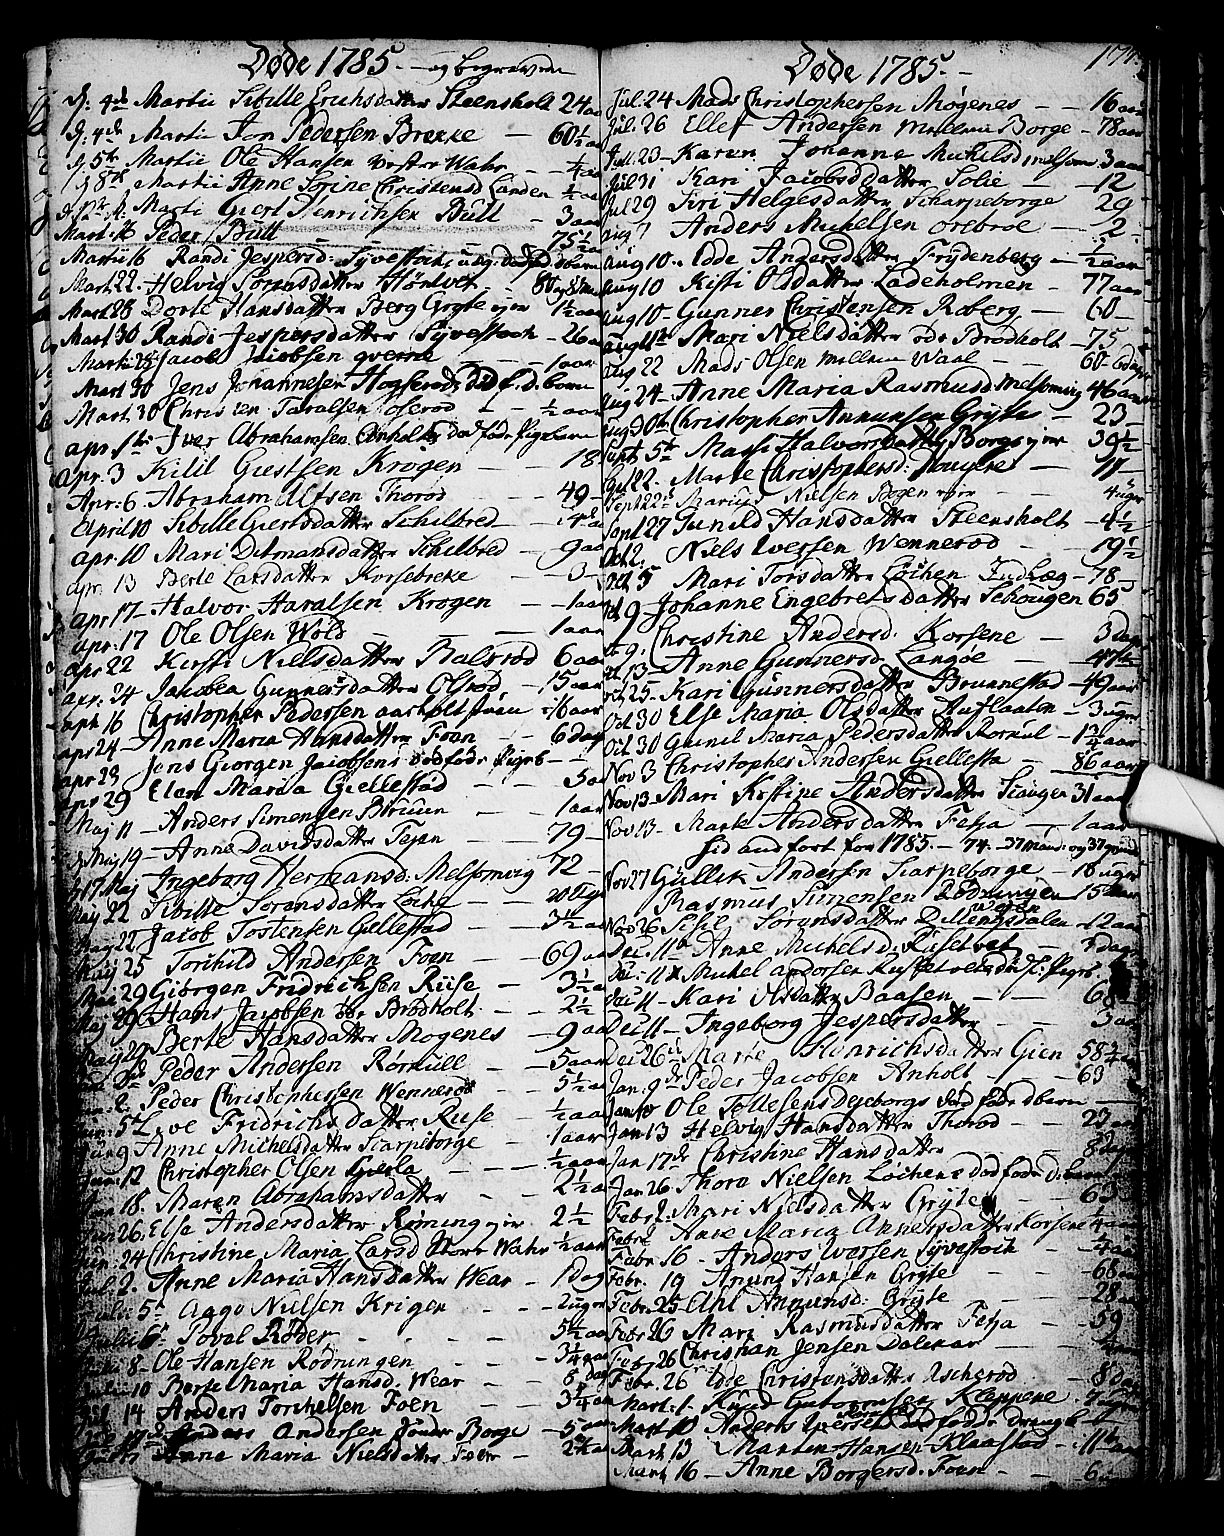 Døde 1785. — og begravne
d. 4de Martii Sibille Erichsdatter Steensholt 24 aar
d. 4de Martii Jon Pedersen Brekke — 60½ aar
d. 5te Martii Ole Hansen Vester Wahr — ¼ aar
d. 8de Martii Anne Sorine Christensd Landen ½ aar
Marti Giert Henrichsen Bull — 3 aar
Mart. 16 Peder Bull 75½ aar
Martii 16 Randi Jespersd: Syvestock dødfød barn
Mart. 22. Helvig Sørensdatter Höntvet
Mart. 28 Dorte Hansdatter Berg Gryte ejer 1½ aar
Mart 30 Randi Jespersdatter Syvestock — 26 aar
Martii 25 Jacob Jacobsen qverne — 1 aar
Mart 30 Jens Johannesen Hogserød død f. d. barn
Mart. 30 Christen Taralsen oserød — ½ aar
apr. 1te Iver Abrahamsen Anholts død født Pigebarn
Apr. 3 Kilil Giertsen Krogen — 18
Apr: 6 Abraham Altsen Thorød — 49
April 10 Sibille Giertsdatter Schilbred
apr. 10 Mari Ditmansdatter Schilbred — 9 aar
apr. 13 Berte Larsdatter Korsebreke — 3
apr 17 Halvor Haralsen Krogen — 1 aar
apr. 17 Ole Olsen Wold — 1 aar
apr. 22 Kirsti Nielsdatter Balsrød 6 aar
apr. 24 Jacobea Gunnersdatter Olsrød — 15 aar
apr. 16 Christopher Pedersen aarholt 16 aar
apr 24 Anne Maria Hansdatter Foen — 6 dag
apr 23 Jens Giorgen Jacobsens død fødde Pigeb
apr 29 Elen Maria Giellestad — 5 a
Maj 11 — Anders Simensen Bruun 1 aar
Maj 19 — Anne Davidsdatter Tejen — 79 —
17 Maj Ingeborg Hermansd. Melsomvig 72 —
Maj 22 Sibille Sørensdatter Leite
Maj 22 Jacob Tostensen Gellestad — 3¼ aar
Maj 25 Torchild Andersen Foen — 69 aar
Maj 29 Giörgen Fridrichsen Riise — 3½ a
Maj 29 Hans Jacobsen ødr Brødholt — 2½
Maj 29 Berte Hansdatter Mogenes — 9 aar
Peder Andersen Rørkull — 5 aar
2 Peder Christophersen Wennerød 5½ aar
Jun: 5te Live Fridrichsdatter Riise — ½ aar
Jun 9 Anne Michelsdatter Scarpeborge — 1 aar
Jun: 12 Christopher Olsen Gierla — ½ aar
Jun 18. Maren Abrahamsdatter — 2½ aar
Jun 26. Else Andersdatter Rømingejer 2½
Jun: 24 Christine Maria Larsd Store Wahr ½ aar
Juli 2. Anne Maria Hansdatter Wear — 1 Dag
Julii 5te Aago Nielsen Krigen — 2 uger
Julii 6 Poval Röder — 5½ aar
8 — Ole Hansen Rødningen — 3¼ aar
10 Berte Maria Hansd. Wear — 8 dag
Jul 14 Anders Torchelsen Foen — 3¼ aar
Anders Andersen Sønder Borge — 5 aar
Anne Maria Nielsdatter Foer — 2½ aar
Døde 1785. —
174
Jul. 24 Mads Christophersen Mogenes — 16 aar
Jul. 26 Ellef Andersen Mellem Borge — 78 aar
Jul. 23 — Karen Johanne Michelsd melsom 3 aar
Jul 31 Kari Jacobsdatter Solie — 12
Jul 29 Siri Helgesdatter Scharpeborge 29
Aug 7 Anders Michelsen örebroe — 2
Aug 10. Edde Andersdatter Frydenberg — ½ aar
Aug 10 Kisti Olsdatter Ladeholmen — 77 aar
Aug 10 — Gunner Christensen Roberg — 60 —
Aug 11te Mari Nielsdatter øde Brødholt — 75
Aug 22 Mads Olsen mellem Waal — 60 — 6 dage
Aug 24 — Anne Maria Rasmusd Melsomvig 46 aar
Aug 30te Christopher Anunsen Gryte — 23
Sept. 5te Marti Halvorsdatter Borge ejer 39½
Marte Christophersd:
Sept 22: Marius Nielsen Bogen ejer — 4 uger
Sept 27 Gunild Hansdatter Steensholt — 4½
Oct 2. Niels Iversen Wennerød — 19½
Oct 5 Mari Torsdatter Løchen Indlæg — 78 —
Oct 9 Johanne Engebretsdatter Schougen 65
Oct 9. Christine Andersd. Korsene — 3 dag
Oct 13 — Anne Gunnersd. Langøe — 47½
Oct 25. Kari Gunnersdatter Brunnestad — 49 aar
Oct 30 Else Maria Olsdatter Huflaaten 3 uger
Oct 30 Gunil Maria Pedersdatter Rorkul — 1¼ aar
Nov 3 Christopher Andersen Giellesta — 86 aar
Nov 13 — Mari Kirstine Andersdatter Scougen 31 aar
Nov 13 — Marte Andersdatter Fetja — 1 aar
hid anført for 1785. — 74. — 37 mand: og 37 qvind
Nov 27 Gullik Andersen Scarpeborge — 18 uger
Rasmus Simensen Rødningen
Nov 26 Sisil Sørensdatter Dillenesdalen 12 aar
Dec: 11te Anne Michelsd. Riiselvet — 3 dage
Dec: 11te Michel andersen Russetvet død f. Pigeb
Dec 11 — Kari Olsdatter Baasen — 68
Dec 11 — Ingeborg Jespersdatter — 3 aar
Dec 26de Marte Henrichsdatter Gien 58¾ aar
Jan. 9de Peder Jacobsen Anholt — 63
Jan 10 Ole Tollefsens Dyeborgs død fødde barn
Jan 13 Helvig Hansdatter Thorød — 23 aar
Jan 17de Christine Hansdatter 8 dage
Jan 26 Thore Nielsen Løchens død fødde D. barn
Febr 1. Mari Nielsdatter Gryte — 63
Febr. Anne Maria Annensdatter Korsene ¼ aar
Febr 16 — Anders Iversen Syvestoch — ¼ aar
Febr. 19 Anund Hansen Gryte — 68 aar
Febr. 25 Ahl Anunsd: Gryte — 28 aar
Febr 26 Mari Rasmusdatter Fetja — 59
Febr 26 Christian Jensen Dalevar
Febr. 26 Edde Christensdatter Ascherød — 8 dag
Mart. 1. Knud Gutormsen Kleppene 7 uger
Mart 10 Anders Iversen død fødde drengeb
Mart 13 Morten Hansen Klaastad — 11te
Mart 16 — Anne Borgersd. Foen — 6